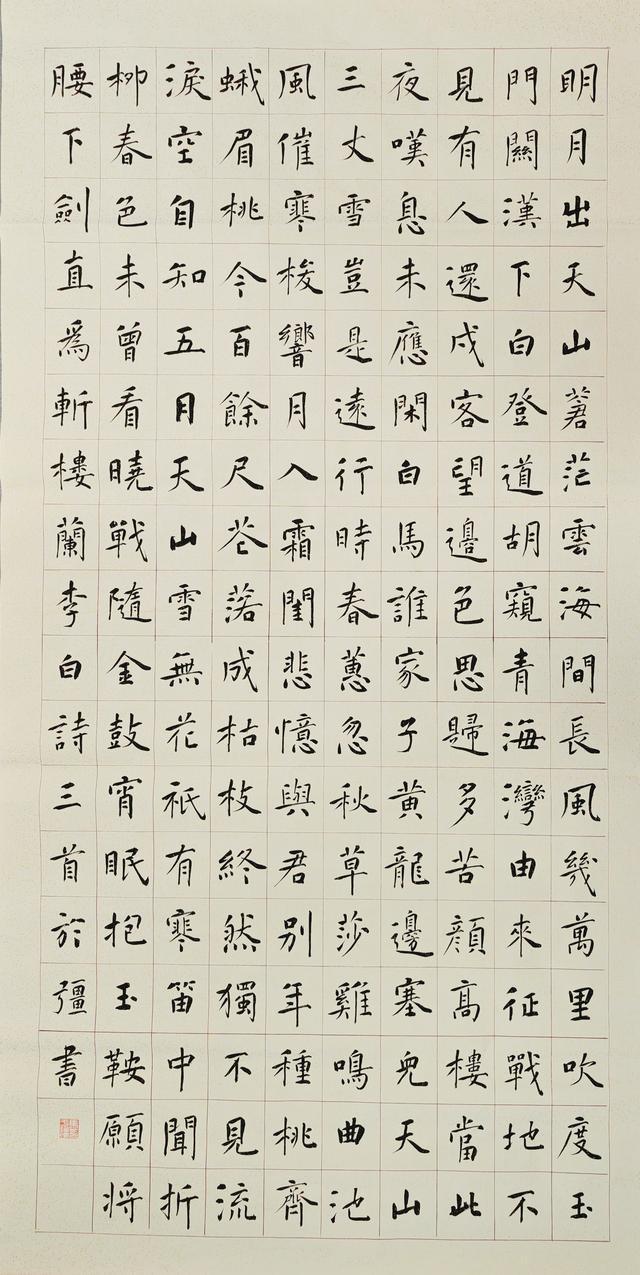 明月出天山蒼茫雲海間長風幾萬里吹度玉
門關漢下白登道胡窺青海灣由來征戰地不
見有人還戍客望邊色思歸多苦顏高樓當此
夜嘆息未應閑白馬誰家子黃龍邊塞兒天山
三丈雪豈是遠行時春蕙忽秋草莎雞鳴曲池
風催寒梭響月入霜閨悲憶與君別年種桃齊
蛾眉桃今百餘尺花落成枯枝終然獨不見流
淚空自知五月天山雪無花祇有寒笛中聞折
柳春色未曾看曉戰隨金鼓宵眠抱玉鞍願將
腰下劍直爲斬樓蘭李白詩三首於疆書